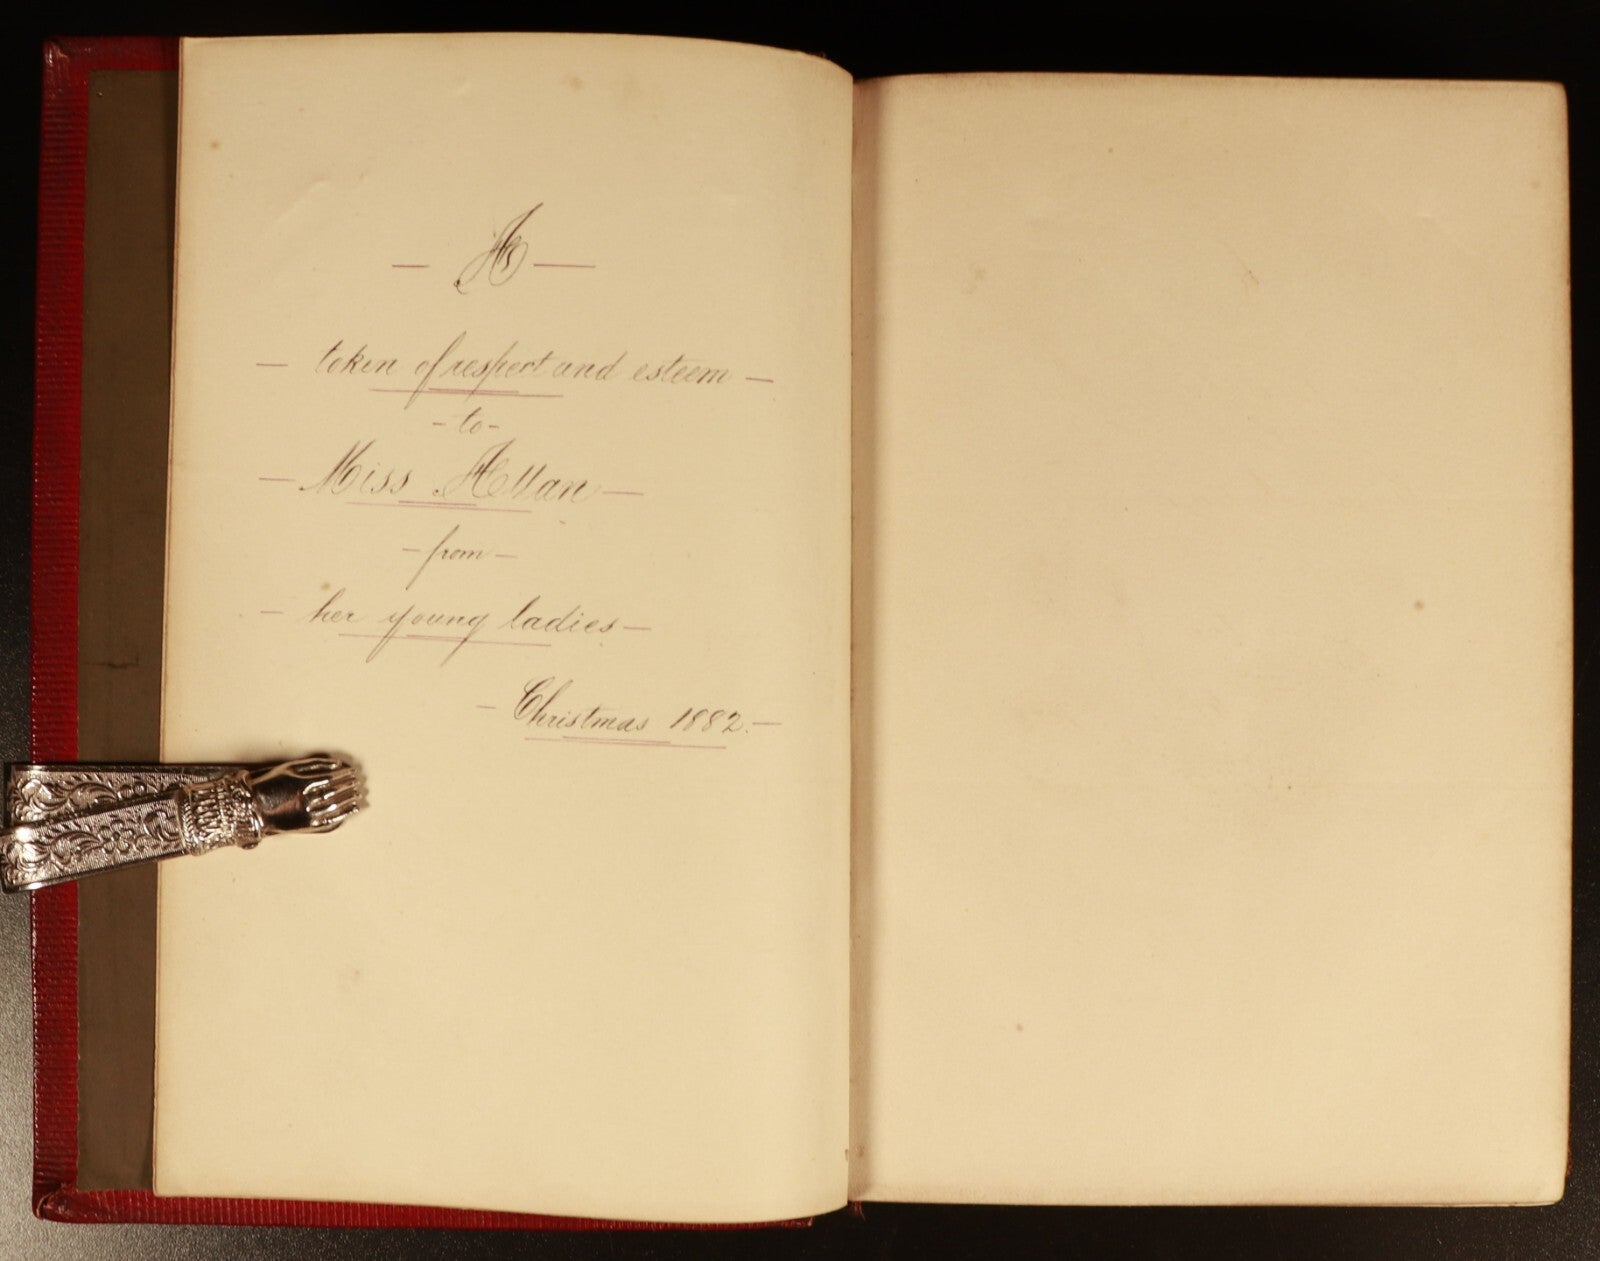 — A —
— token of respect and esteem —
- to -
— Miss Allan —
- from -
— her young ladies —
- Christmas 1882. —